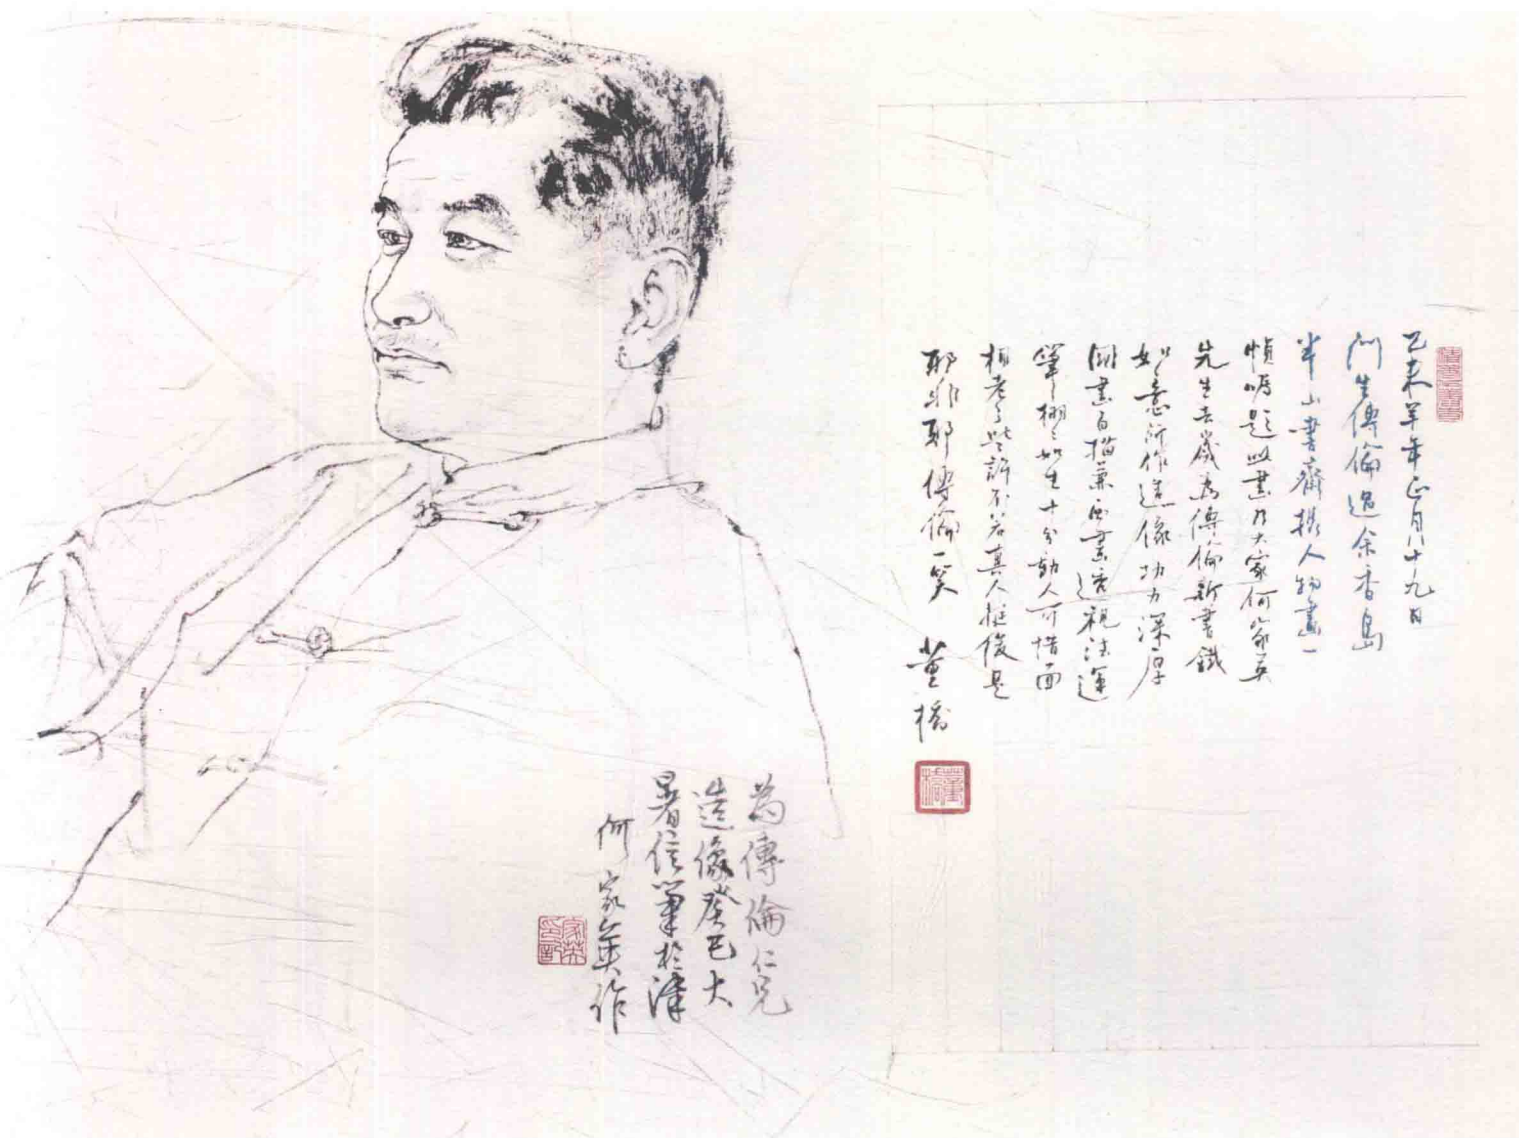 乙未羊年正月八十九日
門生傳倫過余香島
半山書齋携人物畫一
幀囑題此畫乃大家何家英
先生去歲為傳倫新書鐵
如意所作造像功力深厚
國畫白描兼西畫透視法運
筆栩栩如生十分動人可惜面
相老了些許不若真人挺俊是
耶非耶傳倫一笑
董橋
董橋
為傳倫仁兄
造像癸巳大
暑信筆於津
何家英作
家英
印記